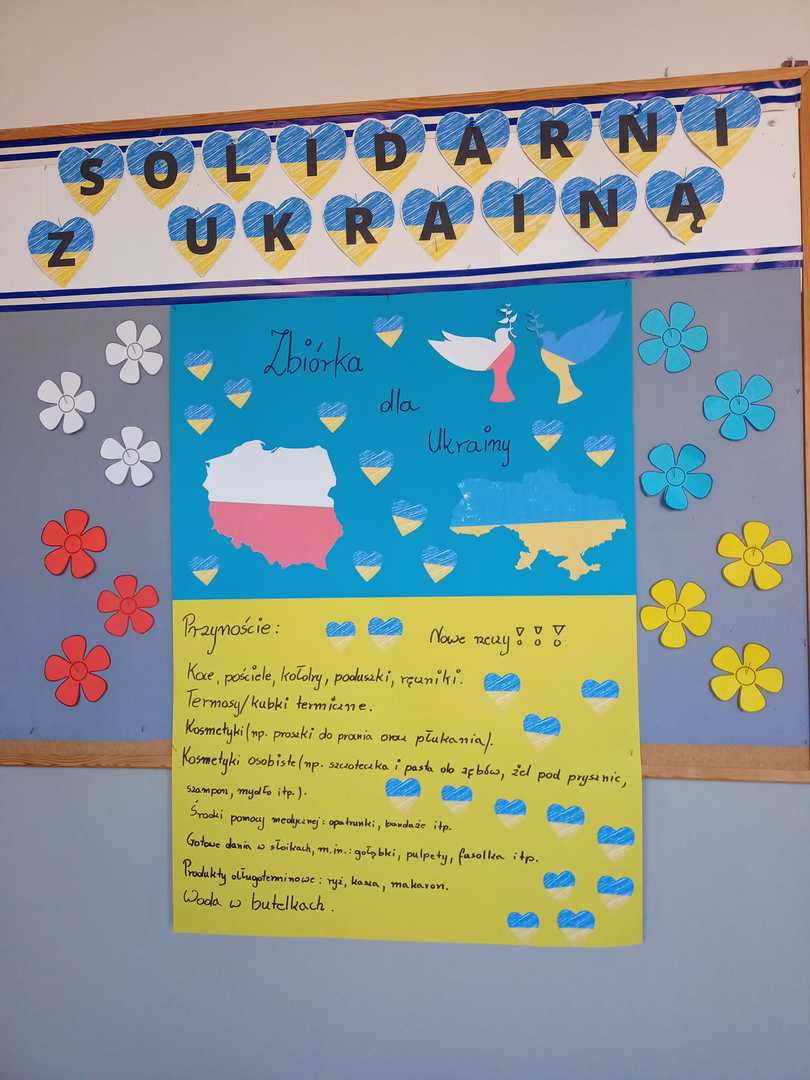 SOLIDARNI
Z UKRAINĄ
Zbiórka
dla
Ukrainy
Przynoście:
Nowe rzeczy!!!
Koce, pościele, kołdry, poduszki, ręczniki.
Termosy/kubki termiczne.
Kosmetyki (np. proszki do prania oraz płukania).
Kosmetyki osobiste (np. szczoteczka i pasta do zębów, żel pod prysznic,
szampon, mydło itp.).
Środki pomocy medycznej: opatrunki, bandaże itp.
Gotowe dania w słoikach, m.in.: gołąbki, pulpety, fasolka itp.
Produkty długoterminowe: ryż, kasza, makaron.
Woda w butelkach.